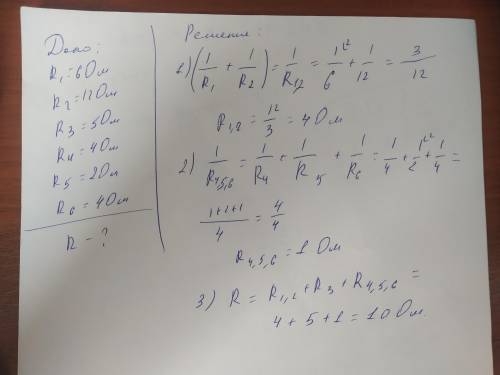 Дано:
R₁ = 6 Ом
R₂ = 12 Ом
R₃ = 5 Ом
R₄ = 4 Ом
R₅ = 2 Ом
R₆ = 4 Ом
R – ?
Решение:
1) (1/R₁ + 1/R₂) = 1/R₁,₂ = 1^2/6 + 1/12 = 3/12
R₁,₂ = 12/3 = 4 Ом
2) 1/R₄,₅,₆ = 1/R₄ + 1/R₅ + 1/R₆ = 1/4 + 1^2/2 + 1/4 =
(1+2+1)/4 = 4/4
R₄,₅,₆ = 1 Ом
3) R = R₁,₂ + R₃ + R₄,₅,₆ =
4 + 5 + 1 = 10 Ом